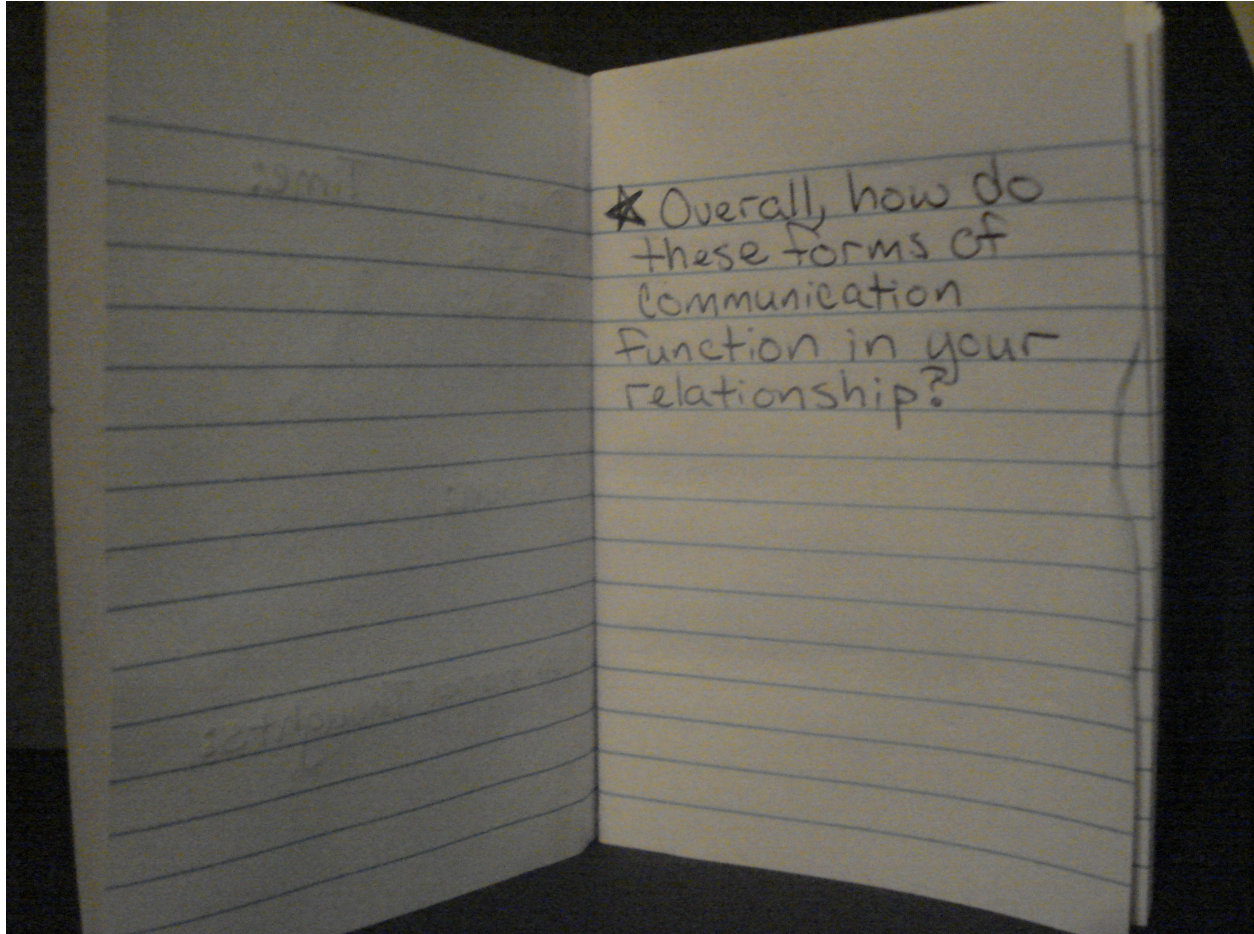 Time:
Thoughts:
★ Overall, how do
these forms of
communication
function in your
relationship?